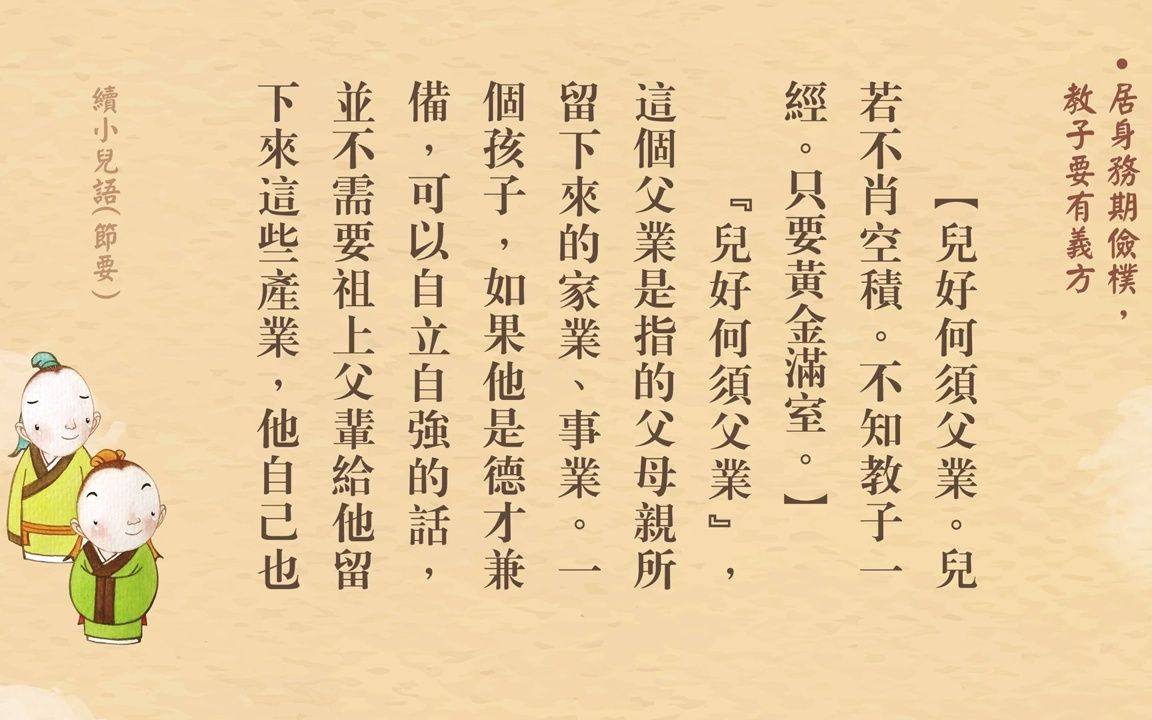 •居身務期儉樸，
教子要有義方
【兒好何須父業。兒
若不肖空積。不知教子一
經。只要黃金滿室。】
『兒好何須父業』，
這個父業是指的父母親所
留下來的家業、事業。一
個孩子，如果他是德才兼
備，可以自立自強的話，
並不需要祖上父輩給他留
下來這些產業，他自己也
續小兒語(節要)